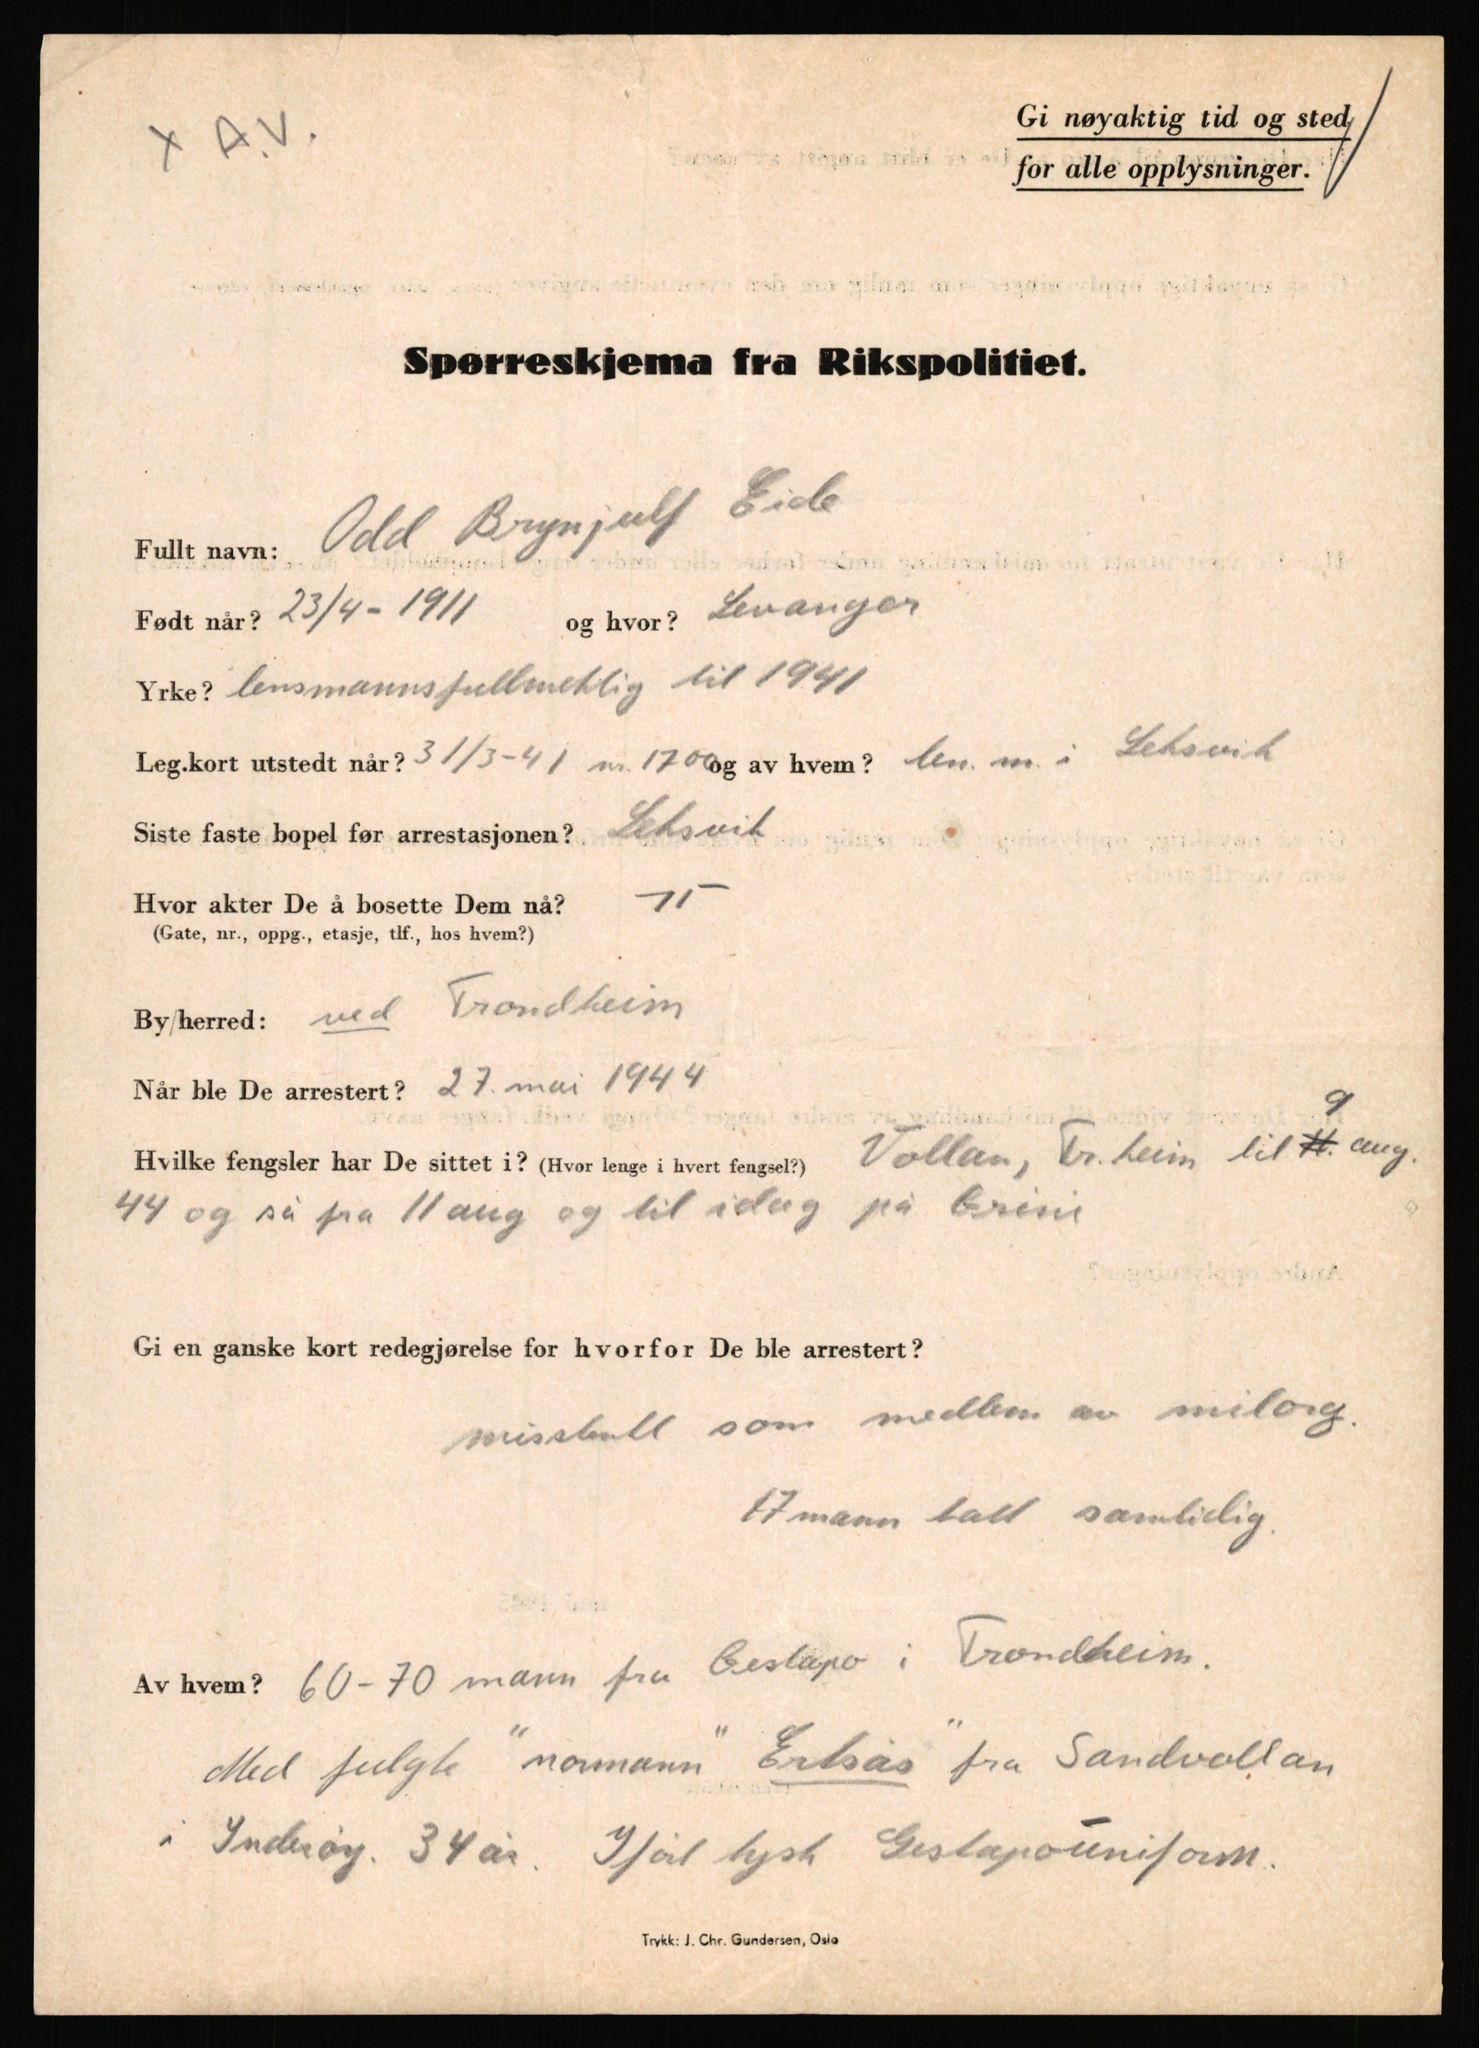 X A.V.
Gi nøyaktig tid og sted
for alle opplysninger.
Spørreskjema fra Rikspolitiet.
Fullt navn: Odd Brynjulf Eide
Født når? 23/4-1911 og hvor? Levanger
Yrke? lensmannsfullmektig til 1941
Leg.kort utstedt når? 31/3-41 nr. 1700 og av hvem? len.m. i Leksvik
Siste faste bopel før arrestasjonen? Leksvik
Hvor akter De å bosette Dem nå?
(Gate, nr., oppg., etasje, tlf., hos hvem?)
By/herred: ved Trondheim
Når ble De arrestert? 27. mai 1944
Hvilke fengsler har De sittet i? (Hvor lenge i hvert fengsel?) Vollan, Tr.heim til 9 aug.
44 og så fra 11 aug og til idag på Grini
Gi en ganske kort redegjørelse for hvorfor De ble arrestert?
misstenkt som medlem av milorg.
17 mann tatt samtidig.
Av hvem? 60-70 mann fra Gestapo i Trondheim.
Med fulgte "normann" Ertsås" fra Sandvollan
i Inderøy. 34 år. Iført tysk Gestapouniform.
Trykk: J. Chr. Gundersen, Oslo